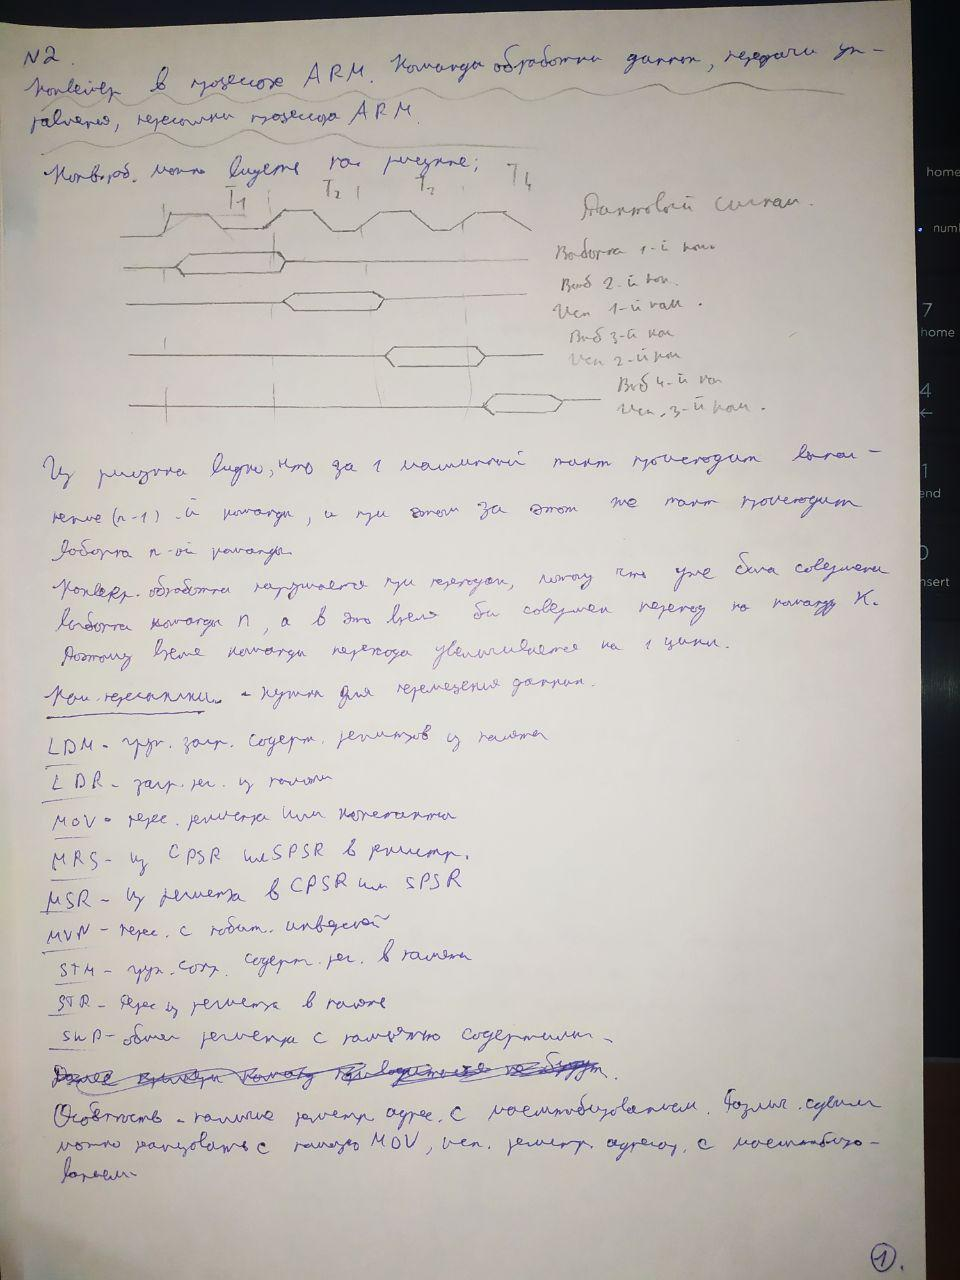 N2.
Конвейер в процессоре ARM. Команды обработки данных, передачи уп-
равления, пересылки процессора ARM.
Конв. обр. можно видеть на рисунке;
T1 T2 T3 T4
Тактовый сигнал.
Выборка 1-й ком.
Выб 2-й ком.
Исп 1-й ком.
Выб 3-й ком
Исп 2-й ком
Выб 4-й ком
Исп. 3-й ком.
Из рисунка видно, что за 1 машинный такт происходит выпол-
нение (n-1)-й команды, и при этом за этот же такт происходит
выборка n-ой команды.
Конвейр. обработка нарушается при переходах, потому что уже была совершена
выборка команды n, а в это время был совершен переход на команду K.
Поэтому время команды перехода увеличивается на 1 цикл.
Ком. пересылки - нужны для перемещения данных.
LDM - груп. загр. содерж. регистров из памяти
LDR - загр. рег. из памяти
MOV - перес. регистра или константы
MRS - из CPSR или SPSR в регистр.
MSR - из регистра в CPSR или SPSR
MVN - перес. с побит. инверсией
STM - груп. сохр. содерж. рег. в памяти
STR - перес из регистра в память
SWP - обмен регистра с памятью содержимым
Особенность - наличие регистр. адрес. с масштабированием. Различ. сдвиги
можно реализовать с помощью MOV, исп. регистр. адресац. с масштабиро-
ванием.
1.
home
num
7
home
4
←
1
end
0
insert